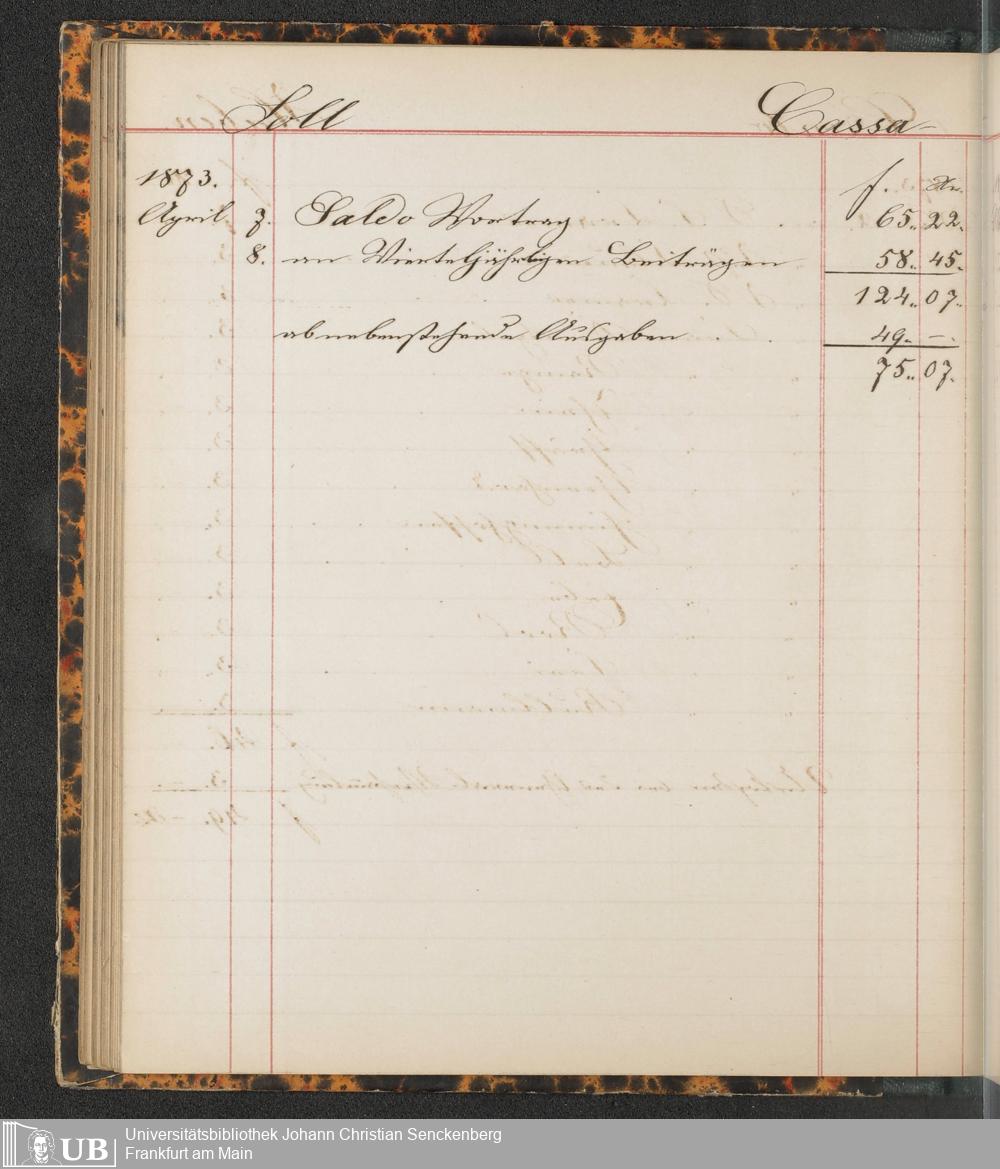 Soll Cassa
1873. f. Xr.
April 7. Saldo Vortrag . 65.. 22.
8. an Vierteljährligen Beiträgen 58.. 45.
124.. 07.
ab nebenstehende Ausgaben . . 49. –.
75.. 07.
UB
Universitätsbibliothek Johann Christian Senckenberg
Frankfurt am Main